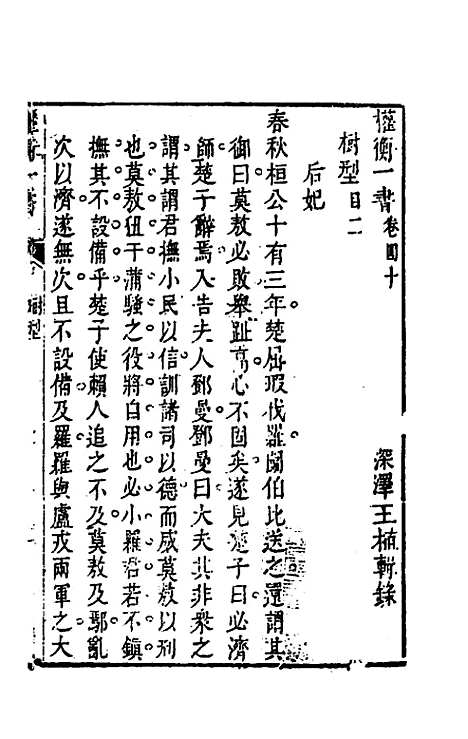 權衡一書卷四十
深澤王植輯錄
樹型目二
后妃
春秋桓公十有三年楚屈瑕伐羅鬭伯比送之還謂其
御曰莫敖必敗舉趾高心不固矣遂見楚子曰必濟
師楚子辭焉入告夫人鄧曼鄧曼曰大夫其非衆之
謂其謂君撫小民以信訓諸司以德而威莫敖以刑
也莫敖狃于蒲騷之役將自用也必小羅君若不鎮
撫其不設備乎楚子使賴人追之不及莫敖及鄢亂
次以濟遂無次且不設備及羅羅與盧戎兩軍之大
權衡一書
樹型